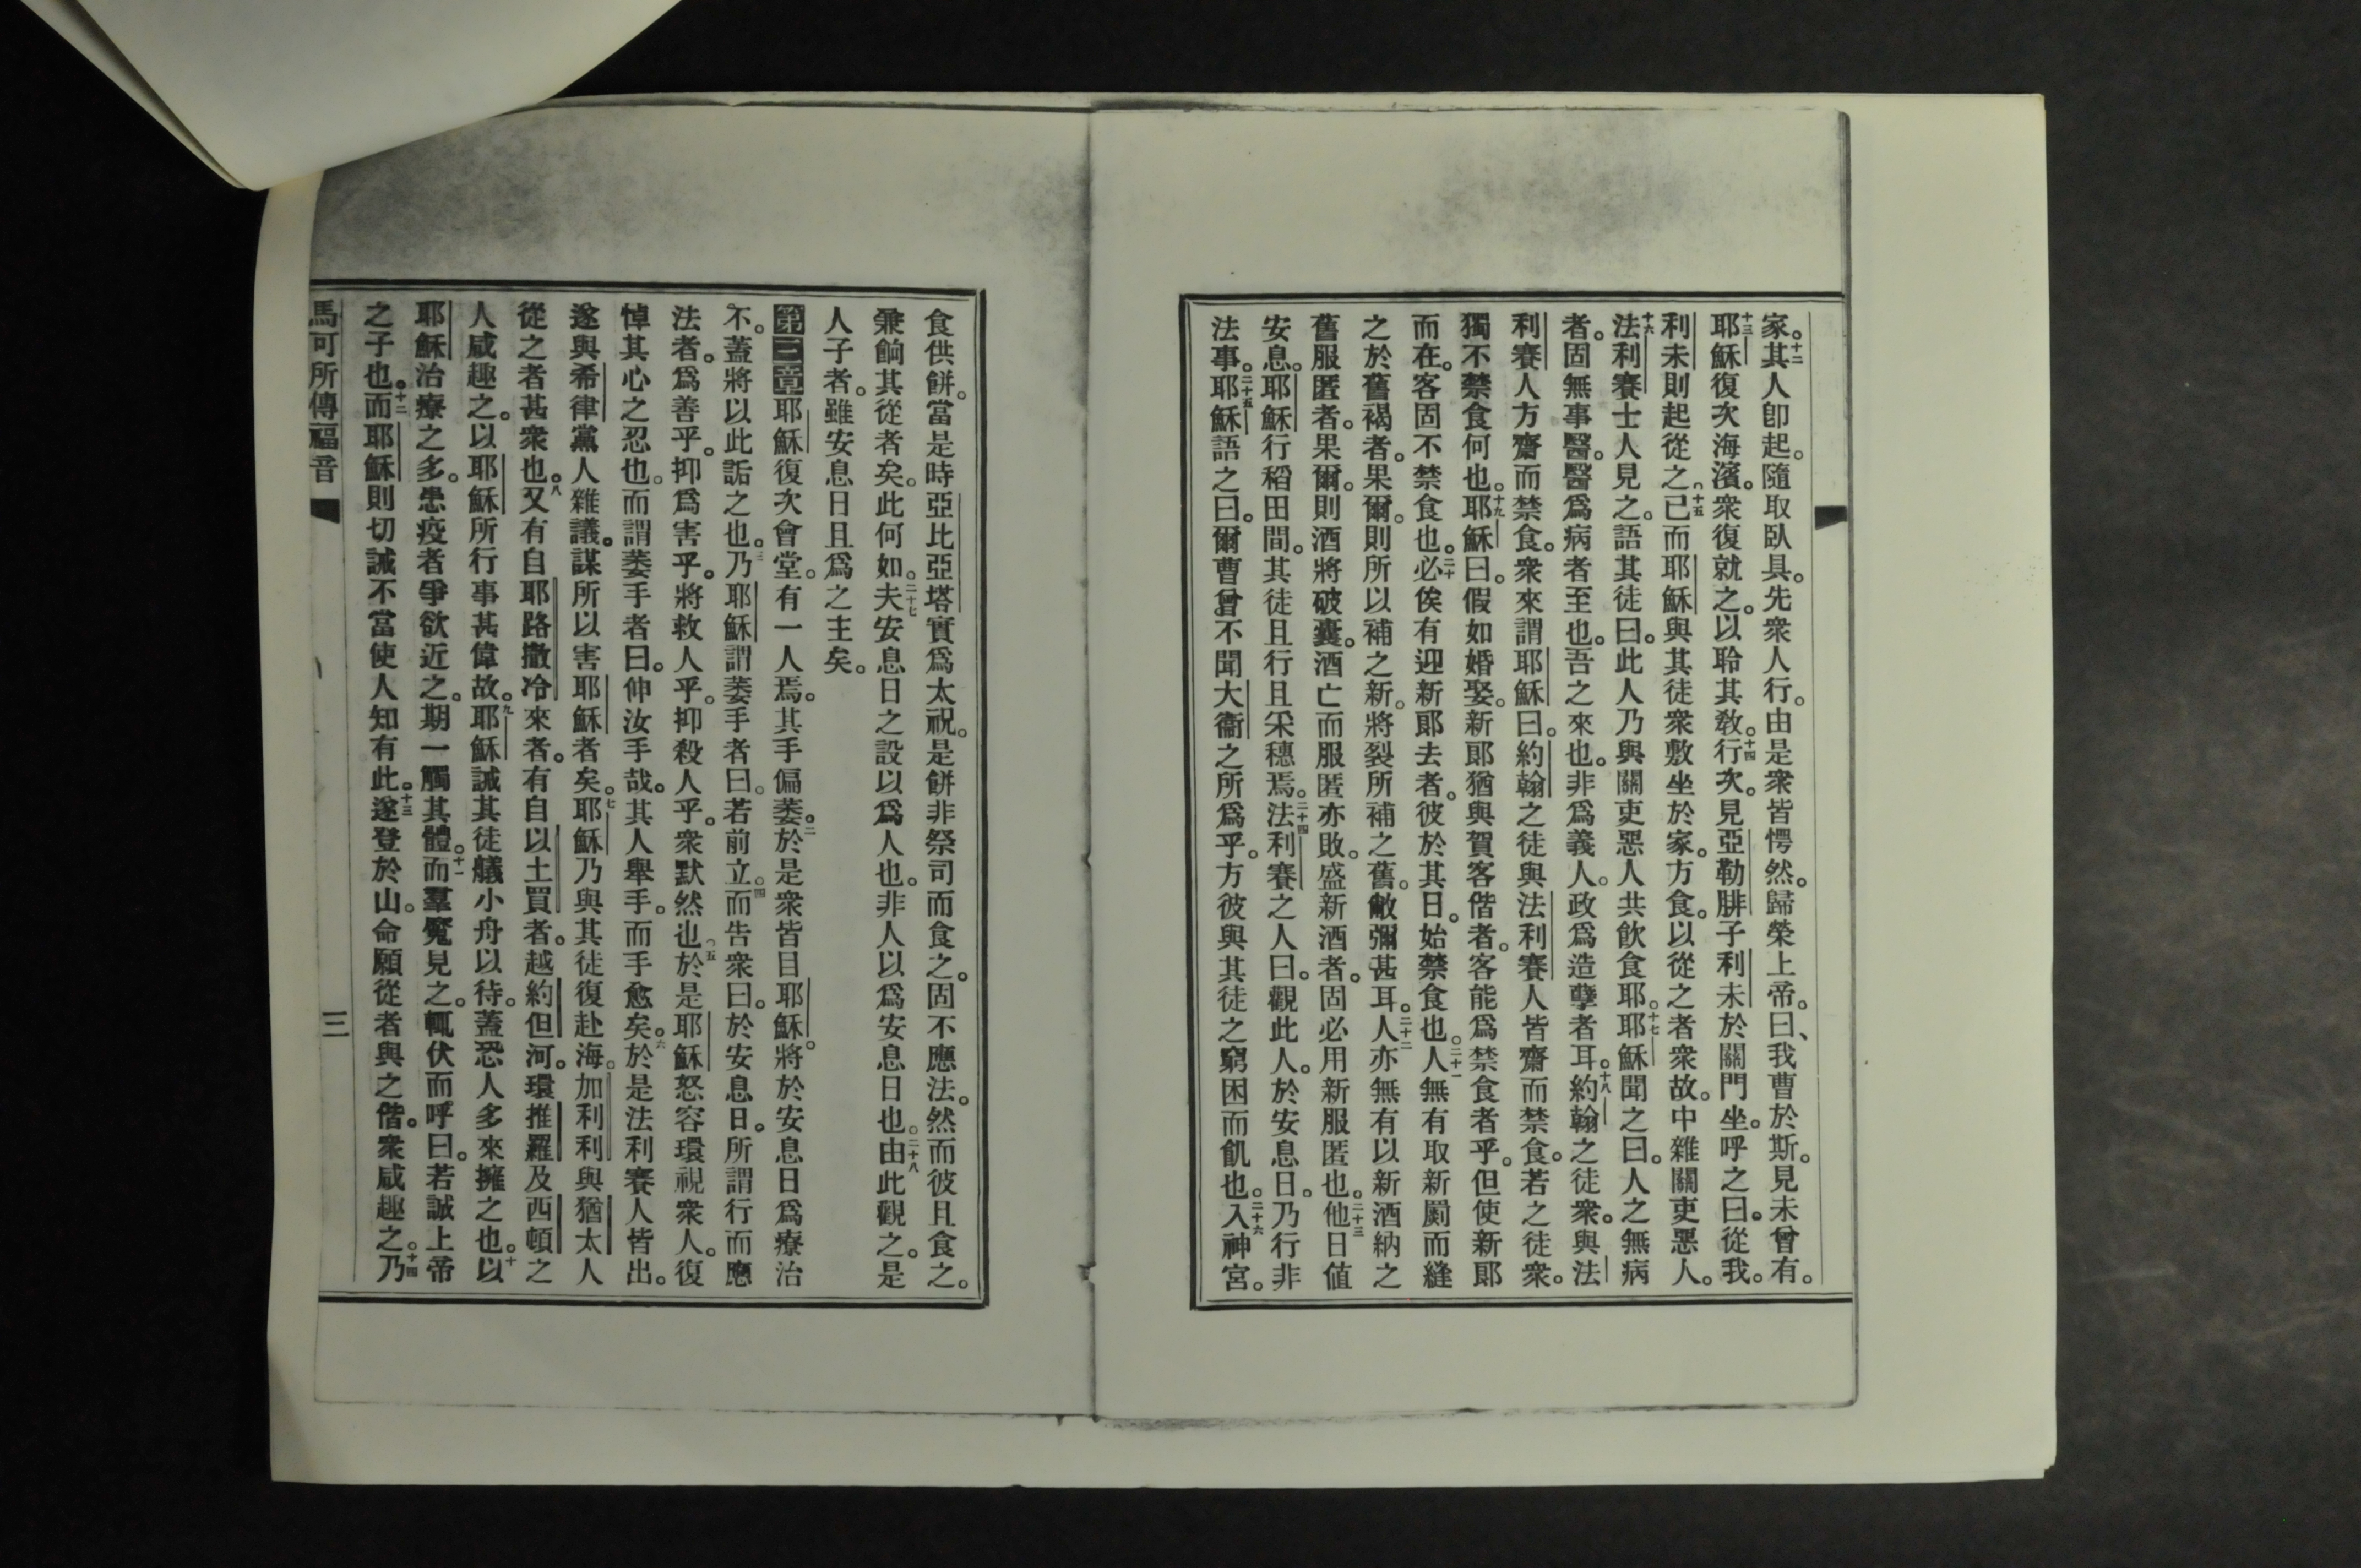 家。十二其人卽起。隨取臥具。先衆人行。由是衆皆愕然。歸榮上帝。曰、我曹於斯。見未曾有。
十三耶穌復次海濱。衆復就之。以聆其敎。十四行次。見亞勒腓子利未於關門坐。呼之曰。從我。
利未則起從之。十五已而耶穌與其徒衆敷坐於家。方食。以從之者衆故。中雜關吏惡人。
十六法利賽士人見之。語其徒曰。此人乃與關吏惡人共飮食耶。十七耶穌聞之曰。人之無病
者。固無事醫。醫爲病者至也。吾之來也。非爲義人。政爲造孽者耳。十八約翰之徒衆。與法
利賽人方齋而禁食。衆來謂耶穌曰。約翰之徒與法利賽人皆齋而禁食。若之徒衆。
獨不禁食何也。十九耶穌曰。假如婚娶。新郞猶與賀客偕者。客能爲禁食者乎。但使新郞
而在。客固不禁食也。二十必俟有迎新郞去者。彼於其日。始禁食也。二十一人無有取新罽而縫
之於舊褐者。果爾。則所以補之新。將裂所補之舊。敝彌甚耳。二十二人亦無有以新酒納之
舊服匿者。果爾。則酒將破囊。酒亡而服匿亦敗。盛新酒者。固必用新服匿也。二十三他日値
安息。耶穌行稻田間。其徒且行且采穗焉。二十四法利賽之人曰。觀此人。於安息日。乃行非
法事。二十五耶穌語之曰。爾曹曾不聞大衞之所爲乎。方彼與其徒之窮困而飢也。二十六入神宮。
食供餅。當是時亞比亞塔實爲太祝。是餅非祭司而食之。固不應法。然而彼且食之。
兼餉其從者矣。此何如。二十七夫安息日之設以爲人也。非人以爲安息日也。二十八由此觀之。是
人子者。雖安息日且爲之主矣。
第三章耶穌復次會堂。有一人焉。其手偏萎。二於是衆皆目耶穌。將於安息日爲療治
不。蓋將以此詬之也。三乃耶穌謂萎手者曰。若前立。四而告衆曰。於安息日。所謂行而應
法者。爲善乎。抑爲害乎。將救人乎。抑殺人乎。衆默然也。五於是耶穌怒容環視衆人。復
悼其心之忍也。而謂萎手者曰。伸汝手哉。其人舉手。而手愈矣。六於是法利賽人皆出。
遂與希律黨人雜議。謀所以害耶穌者矣。七耶穌乃與其徒復赴海。加利利與猶太人
從之者甚衆也。八又有自耶路撒冷來者。有自以土買者。越約但河。環推羅及西頓之
人咸趣之。以耶穌所行事甚偉故。九耶穌誡其徒艤小舟以待。蓋恐人多來擁之也。十以
耶穌治療之多。患疫者爭欲近之。期一觸其體。十一而羣魘見之。輒伏而呼曰。若誠上帝
之子也。十二而耶穌則切誡不當使人知有此。十三遂登於山。命願從者與之偕。衆咸趣之。十四乃
馬可所傳福音 三